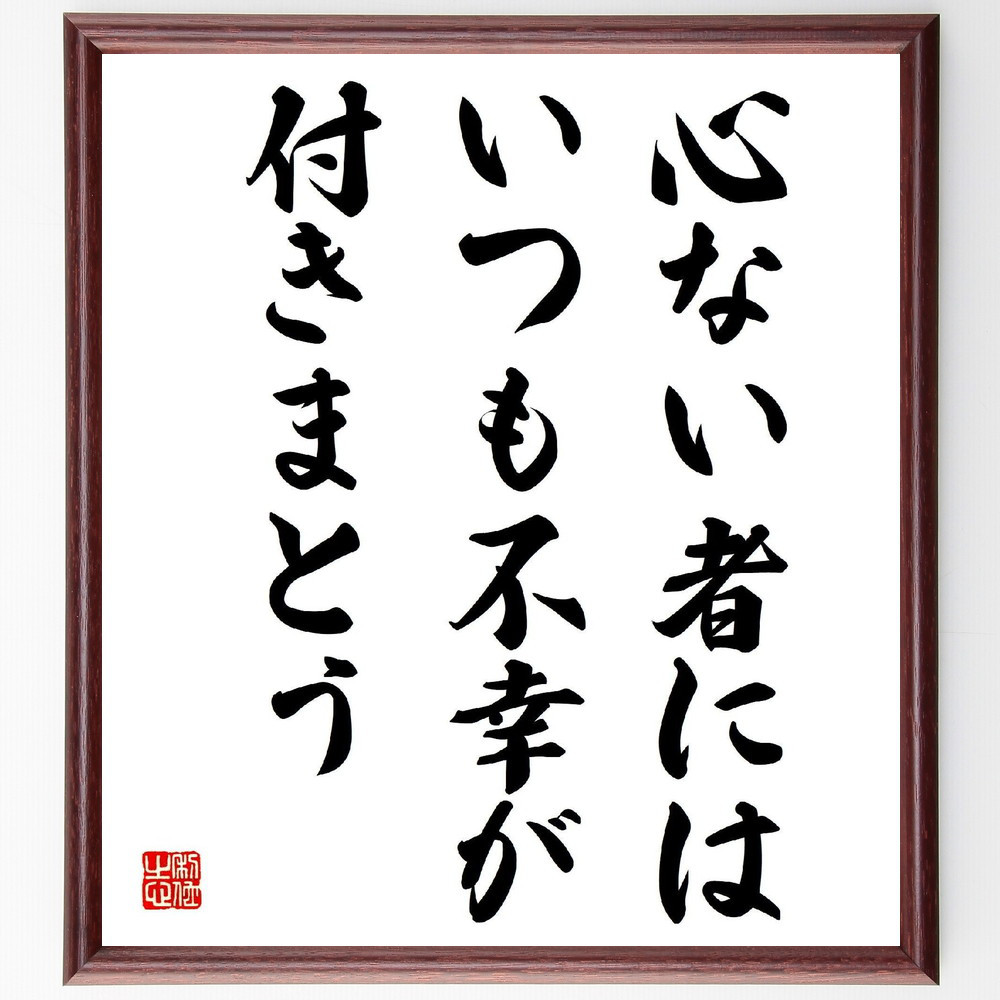 心ない者には
いつも不幸が
付きまとう